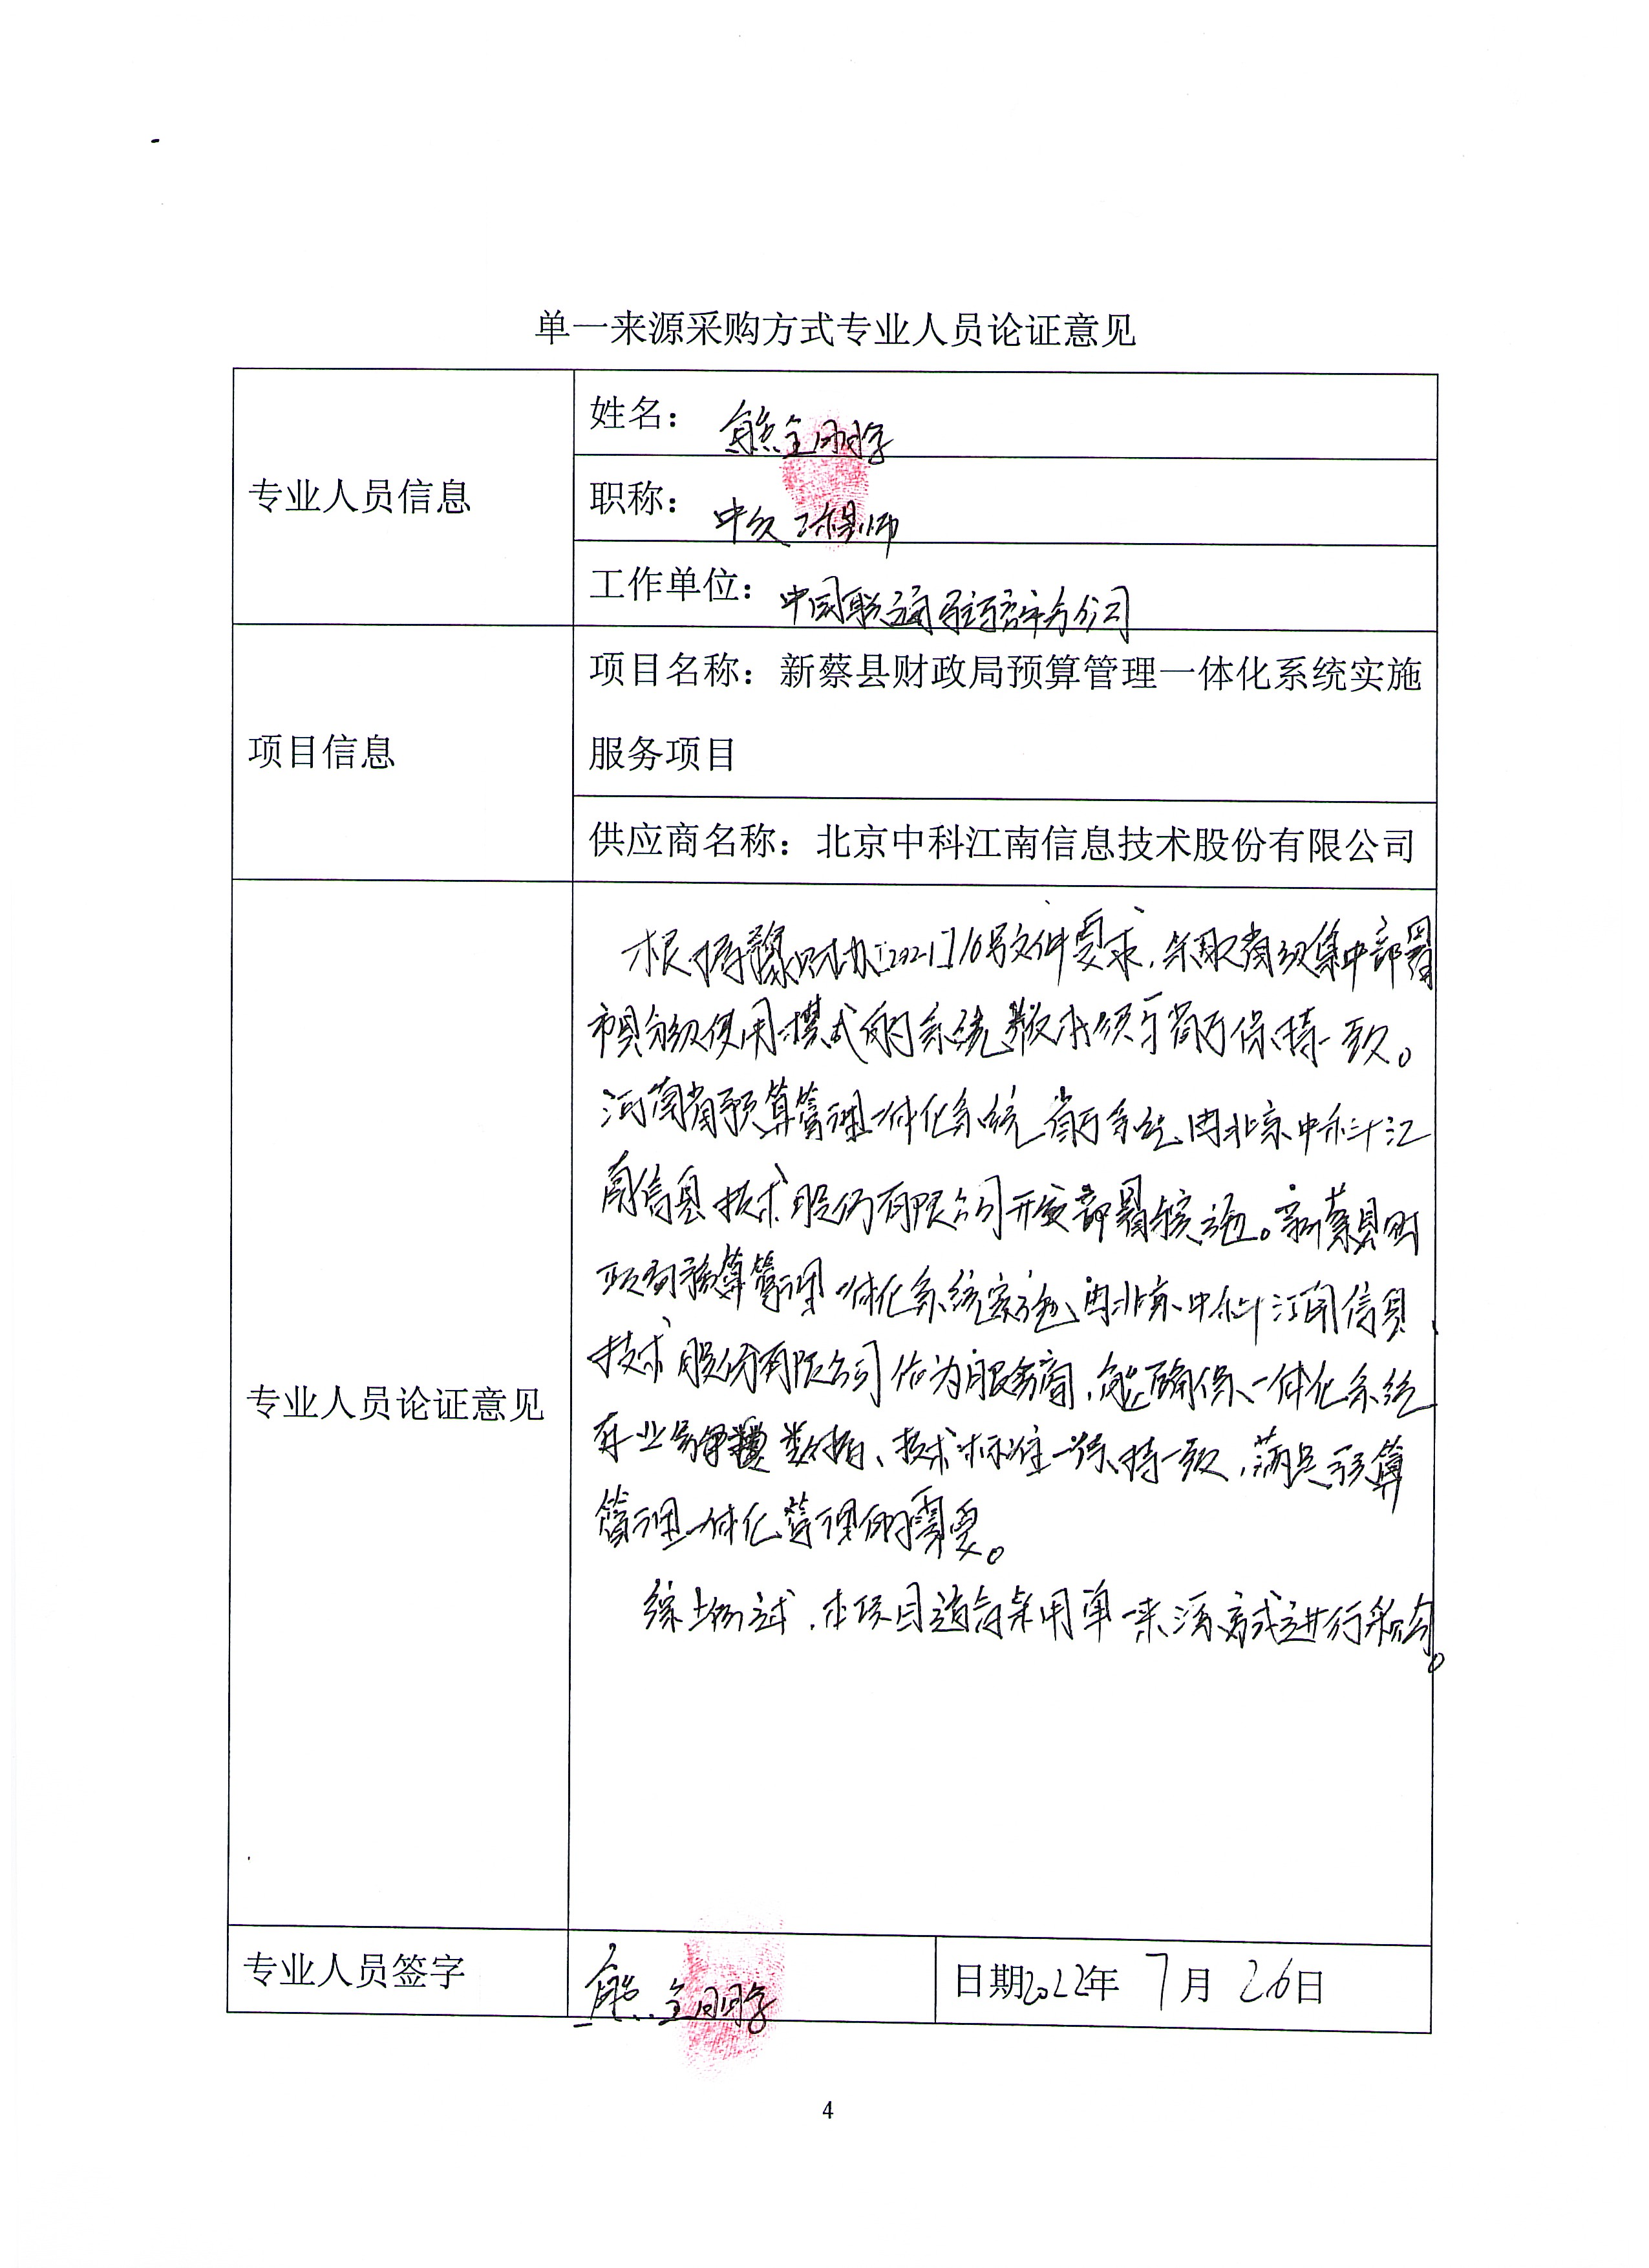 单一来源采购方式专业人员论证意见
专业人员信息
姓名：熊全
职称：中级工程师
工作单位：中国联通驻马店市分公司
项目信息
项目名称：新蔡县财政局预算管理一体化系统实施
服务项目
供应商名称：北京中科江南信息技术股份有限公司
专业人员论证意见
根据豫财办[2021]16号文件要求，采取省级集中部署
市县分级使用模式的系统版本须与省厅保持一致。
河南省预算管理一体化系统省厅系统由北京中科江
南信息技术股份有限公司开发部署实施。新蔡县财
政局预算管理一体化系统实施由北京中科江南信息
技术股份有限公司作为服务商，能确保一体化系统
在业务管理数据、技术标准保持一致，满足预算
管理一体化管理的需要。
综上所述，本项目适合采用单一来源方式进行采购。
专业人员签字
熊全
日期2022年7月26日
4